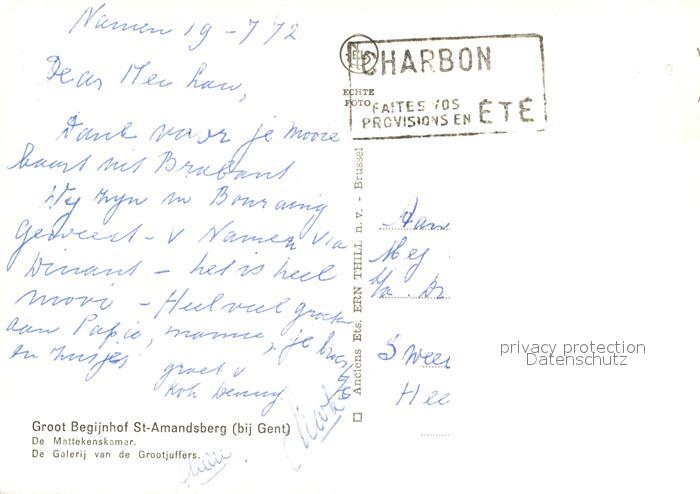 Namen 19-7 72
Dear Mev
Dank voor je mooie
kaart uit Brabant
Wij zijn in
geweest - v Namen via
Dinant - het is heel
mooi - Heel veel groet
aan Papie, mamie, je broer
en zusjes
groet v
CHARBON
FAITES VOS
PROVISIONS EN ÉTÉ
ECHTE
FOTO
Anciens Ets. ERN THILL n.v. - Brussel
Aan
Mej
Swee
Hee
privacy protection
Datenschutz
Groot Begijnhof St-Amandsberg (bij Gent)
De Mattekenskamer.
De Galerij van de Grootjuffers.